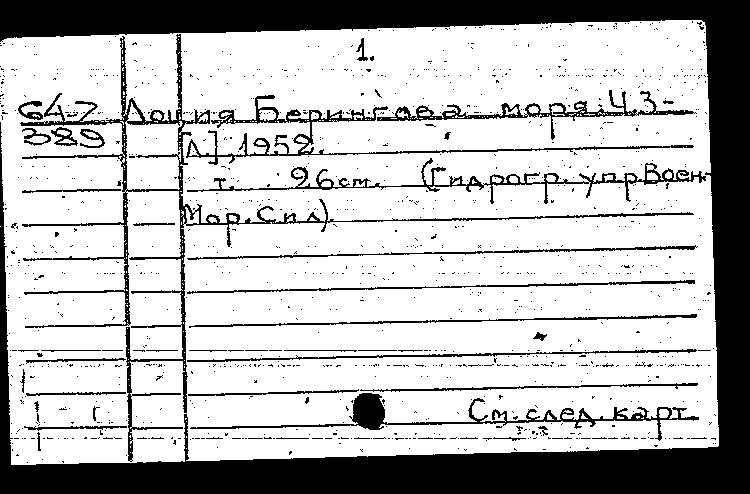 1.
64-7 Лоция Берингова моря. Ч.3-
389 [Л.], 1952.
т. 26 см. (Гидрогр. упр. Воен-
Мор. Сил).
См. след. карт.